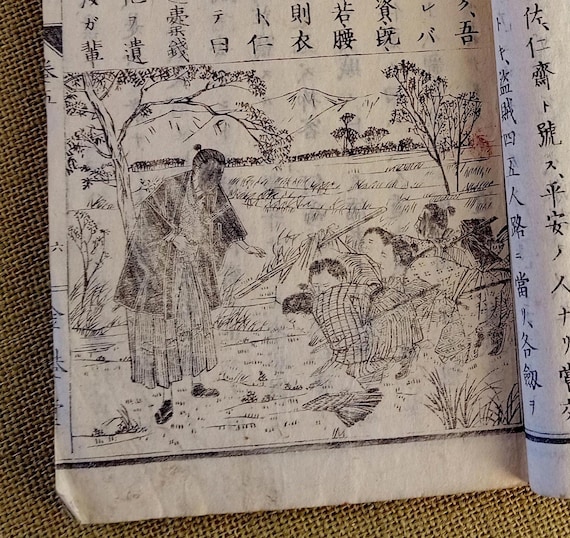 佐仁齋ト號ス、平安ノ人ナリ嘗
盗賊四五人路ニ當リ、各劔ヲ
吾
レバ
資既
若腰
則衣
ト仁
テ曰
橐錢
遺
ガ輩
卷五
六